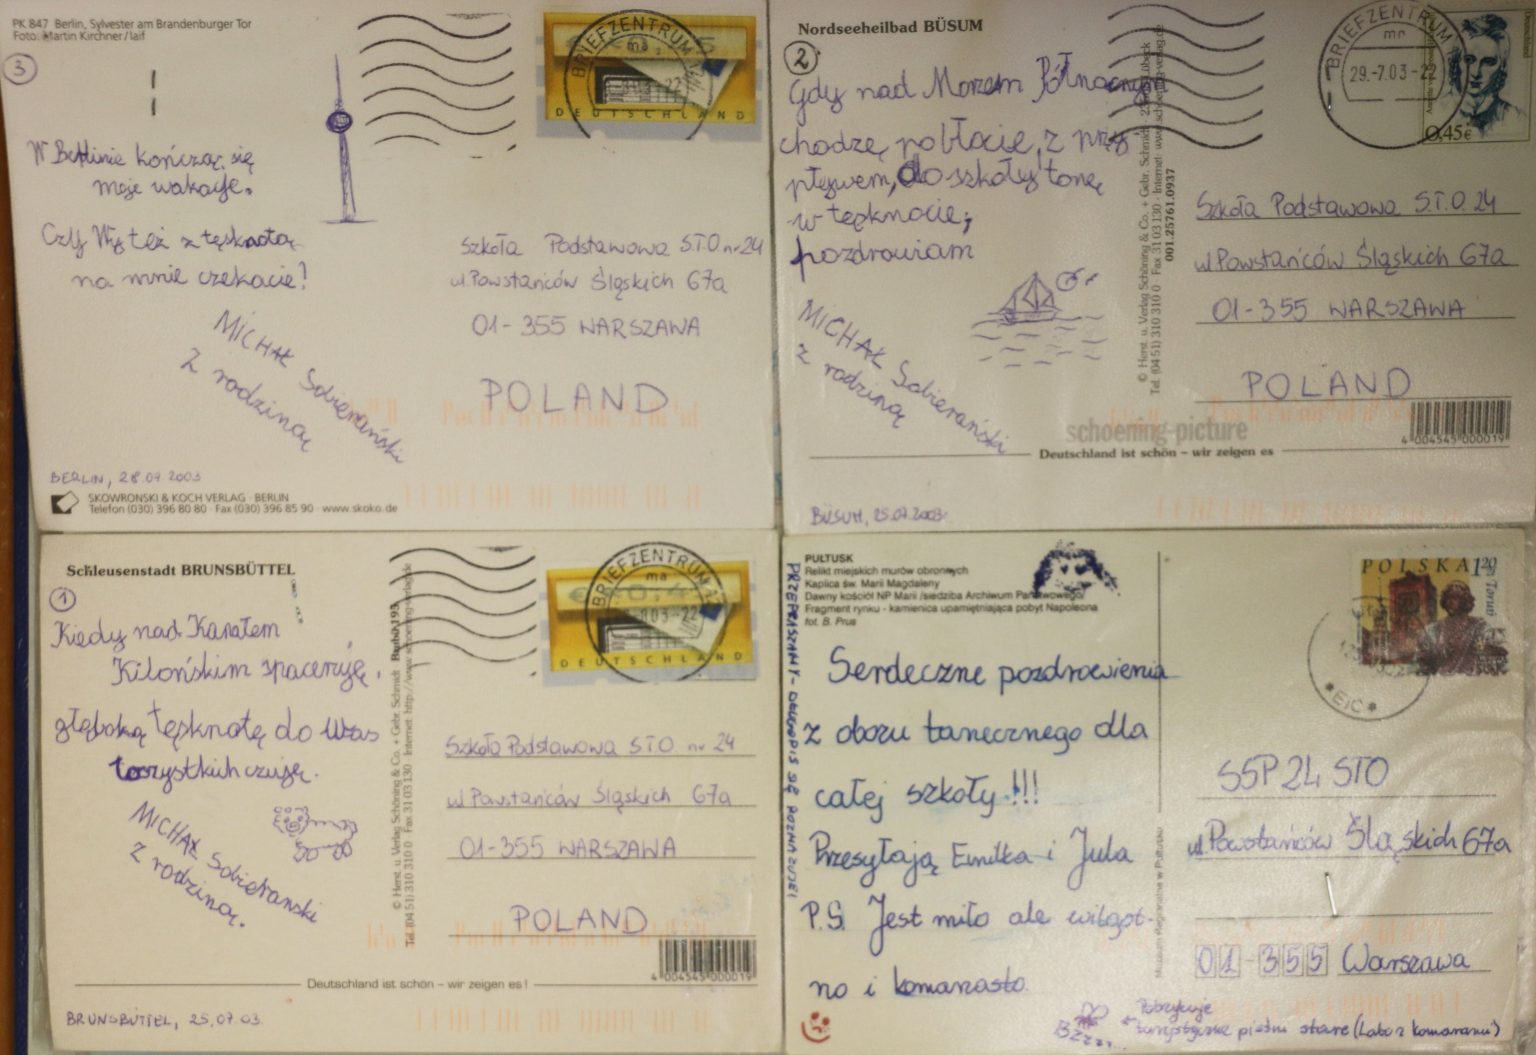 PK 847 Berlin, Sylvester am Brandenburger Tor
Foto: Martin Kirchner/laif
3
W Berlinie kończą się
moje wakacje.
Czy Wy też z tęsknotą
na mnie czekacie!
MICHAŁ Sobierański
z rodziną
BERLIN, 28.07.2003
SKOWRONSKI & KOCH VERLAG · BERLIN
Telefon (030) 396 80 80 · Fax (030) 396 85 90 · www.skoko.de
BRIEFZENTRUM
ma
DEUTSCHLAND
Szkoła Podstawowa S.T.O nr 24
ul. Powstańców Śląskich 67a
01-355 WARSZAWA
POLAND
Nordseeheilbad BÜSUM
2
Gdy nad Morzem Północnym
chodzę po błocie, z przy
pływem, do szkoły tonę
w tęsknocie;
pozdrowiam
MICHAŁ Sobierański
z rodziną
BÜSUM, 25.07.2003
© Herst. u. Verlag Schöning & Co. + Gebr. Schmidt
Tel. (04 51) 310 310 0 · Fax 31 03 130 · Internet:
001.25761.0937
BRIEFZENTRUM
29.-7.03-22
0,45€
Szkoła Podstawowa S.T.O. 24
ul Powstańców Śląskich 67a
01-355 WARSZAWA
POLAND
schoening-picture
4 004545 000019
Deutschland ist schön – wir zeigen es
Schleusenstadt BRUNSBÜTTEL
1
Kiedy nad Kanałem
Kilońskim spaceruję,
głęboką tęsknotę do Was
wszystkich czuję.
MICHAŁ Sobierański
z rodziną.
BRUNSBÜTTEL, 25,07.03.
© Herst. u. Verlag Schöning & Co. + Gebr. Schmidt
Tel. (04 51) 310 310 0 Fax 31 03 130 Internet:
BRIEFZENTRUM
ma
DEUTSCHLAND
Szkoła Podstawowa STO. nr 24
ul Powstańców Śląskich 67a
01-355 WARSZAWA
POLAND
4 004545 000019
Deutschland ist schön – wir zeigen es!
PUŁTUSK
Relikt miejskich murów obronnych
Kaplica św. Marii Magdaleny
Dawny kościół NP Marii /siedziba Archiwum Państwowego/
Fragment rynku - kamienica upamiętniająca pobyt Napoleona
fot. B. Prus
PRZEPRASZAMY - DŁUGOPIS SIĘ ROZMAZUJE!
Serdeczne pozdrowienia
z obozu tanecznego dla
całej szkoły !!!
Przesyłają Emilka i Jula
P.S. Jest miło ale wilgot-
no i komarzasto.
Bzzzz...
turystyczne piętni stare (Labo z komarami)
Muzeum Regionalne w Pułtusku
POLSKA 1,20
Toruń
SSP 24 STO
ul. Powstańców Śląskich 67a
01-355 Warszawa